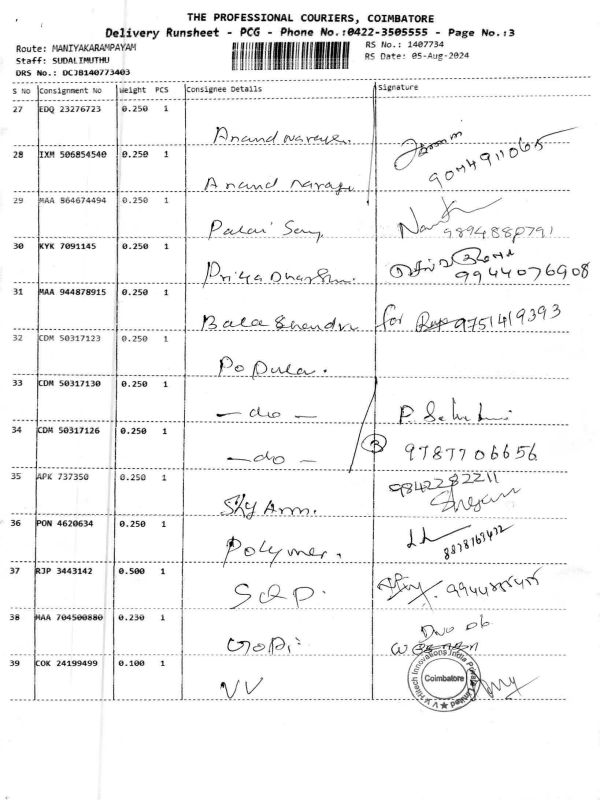 THE PROFESSIONAL COURIERS, COIMBATORE
Delivery Runsheet - PCG - Phone No.:0422-3505555 - Page No.:3
Route: MANIYAKARAMPAYAM
RS No.: 1407734
Staff: SUDALIMUTHU
RS Date: 05-Aug-2024
DRS No.: DCJB140773403
S No Consignment No Weight PCS Consignee Details Signature
27 EDQ 23276723 0.250 1 Anand
28 IXM 506854540 0.250 1 Anand 9044911065
29 MAA 864674494 0.250 1 9894880791
30 KYK 7091145 0.250 1 Priya 9944076908
31 MAA 944878915 0.250 1 Bala for 9751419393
32 CDM 50317123 0.250 1 Popular.
33 CDM 50317130 0.250 1 - do - P.
34 CDM 50317126 0.250 1 - do - 3 9787706656
35 APK 737350 0.250 1 Sky Arm. 9842282211
36 PON 4620634 0.250 1 Polymer.
37 RJP 3443142 0.500 1
38 MAA 704500880 0.230 1 Gopi
39 COK 24199499 0.100 1 VV
V V Hitech Innovations India Private Limited
Coimbatore